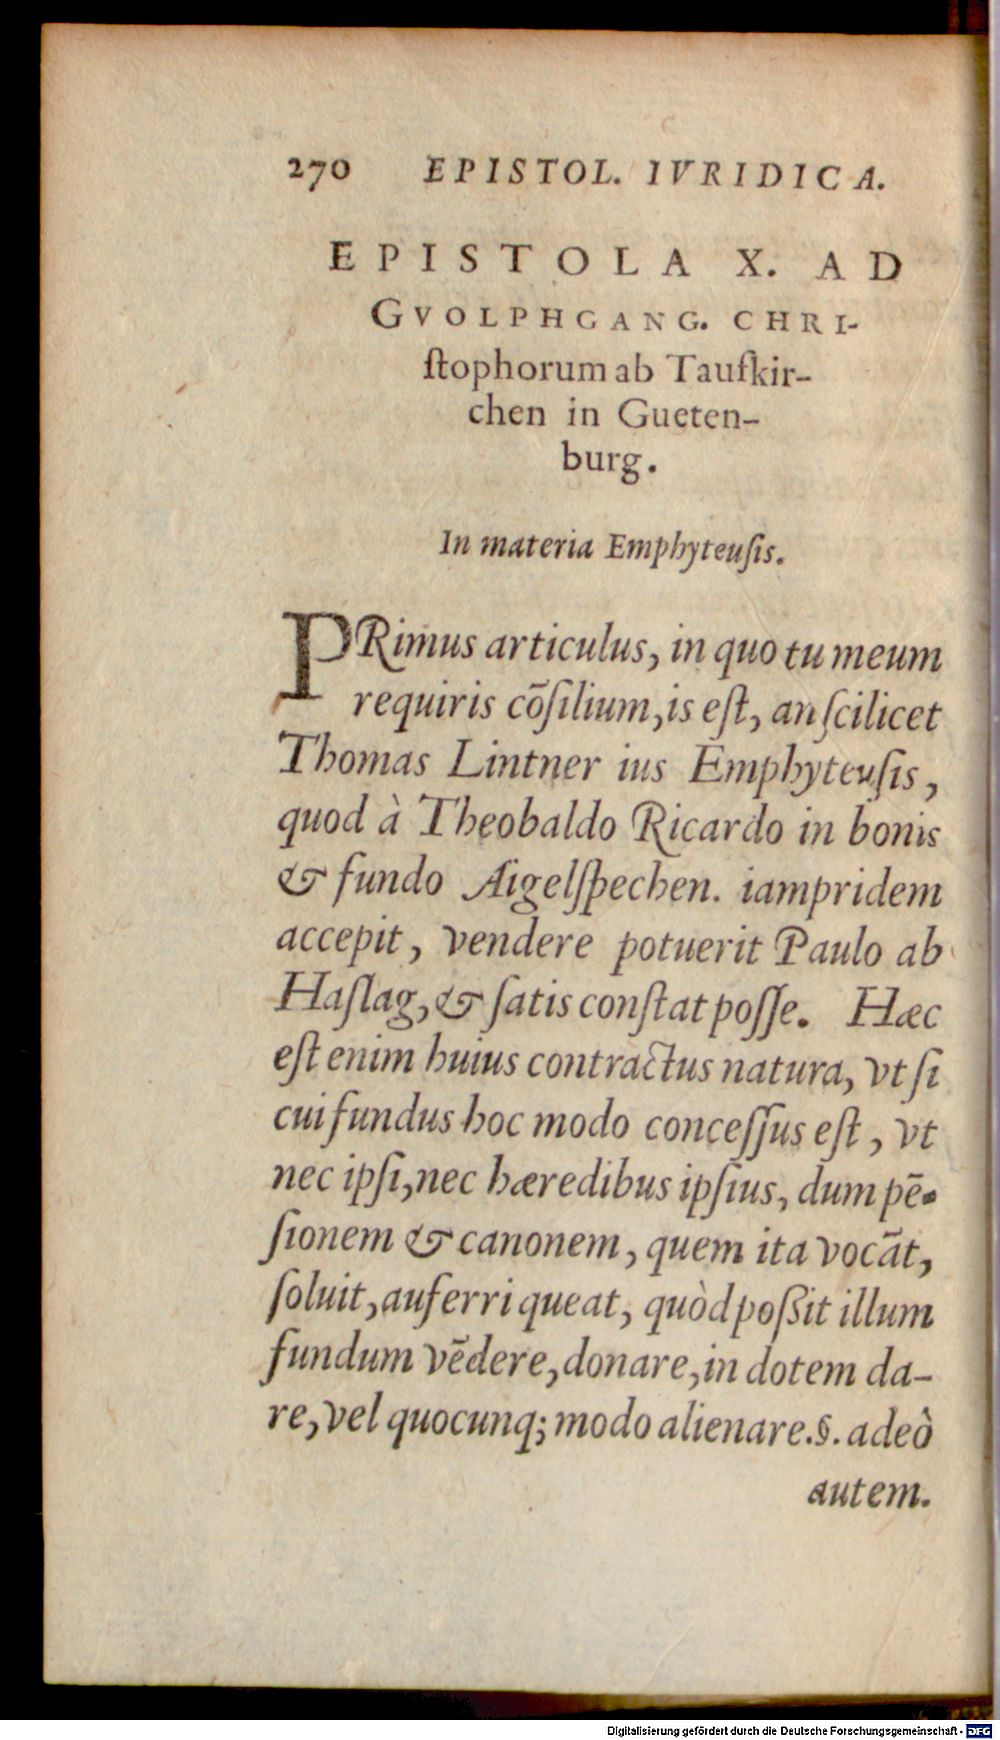 270 EPISTOL. IVRIDICA.
EPISTOLA X. AD
GVOLPHGANG. CHRI-
ſtophorum ab Taufkir-
chen in Gueten-
burg.
In materia Emphyteuſis.
PRimus articulus, in quo tu meum
requiris cõſilium, is eſt, an ſcilicet
Thomas Lintner ius Emphyteuſis,
quod à Theobaldo Ricardo in bonis
& fundo Aigelſpechen. iampridem
accepit, vendere potuerit Paulo ab
Haſlag, & ſatis conſtat poſſe. Hæc
eſt enim huius contractus natura, vt ſi
cui fundus hoc modo conceſſus eſt, vt
nec ipſi, nec hæredibus ipſius, dum pẽ-
ſionem & canonem, quem ita vocãt,
ſoluit, auferri queat, quòd poßit illum
fundum vẽdere, donare, in dotem da-
re, vel quocunq; modo alienare. §. adeò
autem.
Digitalisierung gefördert durch die Deutsche Forschungsgemeinschaft - DFG